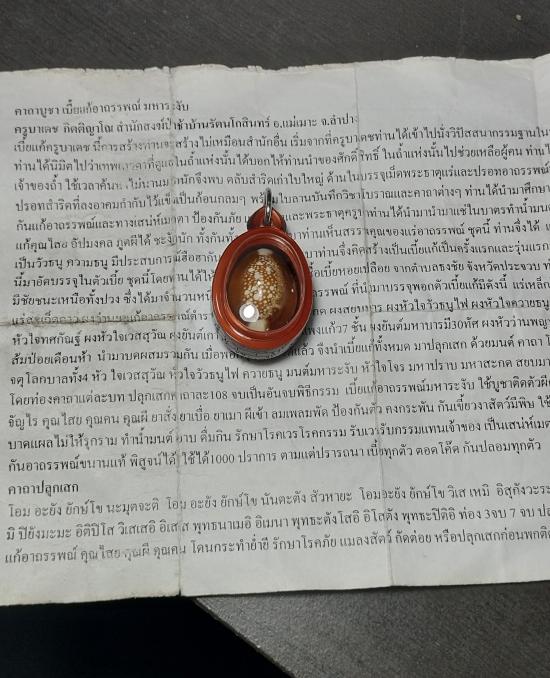 คาถาบูชา เบี้ยแก้อาถรรพณ์ มหาระงับ
ครูบาเดช กิตติญาโณ สำนักสงฆ์ป่าช้าบ้านรัตนโกสินทร์ อ.แม่เมาะ จ.ลำปาง
เบี้ยแก้ครูบาเดช นี้การสร้างท่านจะสร้างไม่เหมือนสำนักอื่น เริ่มจากที่ครูบาเดชท่านได้เข้าไปนั่งวิปัสสนากรรมฐานใน
ท่านได้นิมิตไปว่าเทพเทวดาที่ดูแลในถ้ำแห่งนั้นได้บอกให้ท่านนำของศักดิ์สิทธิ์ ในถ้ำแห่งนั้นไปช่วยเหลือผู้คน ท่าน
เจ้าของถ้ำ ใช้เวลาค้นหาไม่นานมากนักจึงพบ ตลับสำริดเก่าใบใหญ่ ด้านในบรรจุเม็ดพระธาตุแร่และปรอทอาถรรพณ์
ปรอทสำริดที่ลงอาคมกำกับไว้เป็นก้อนกลมๆ พร้อมใบลานบันทึกวิชาโบราณและคาถาต่างๆ ท่านได้นำมาศึกษา
กันแก้อาถรรพณ์และทางเสน่ห์เมตตา ป้องกันภัย และพระธาตุครูบาท่านได้นำมานำมาแช่ในบาตรทำน้ำมนต์
แก้คุณไสย อัปมงคล ภูตผีได้ ชะงักนัก ทั้งกันทั้ง ท่านเห็นสรรคุณของแร่อาถรรพณ์ ชุดนี้ ท่านจึงได้
เป็นวัวธนู ความธนู มีประสบการณ์ ท่านจึงคิดสร้างเป็นเบี้ยแก้เป็นครั้งแรกและรุ่นแรก
นี้มาอัดบรรจุในตัวเบี้ย ชุดนี้โดยท่านได้ให้ เบี้ยหอยเปลือย จากตำบลธงชัย จังหวัดประจวบ
มีชัยชนะเหนือทั้งปวง ซึ่งได้มาจำนวนหนึ่ง ที่นำมาบรรจุพอกตัวเบี้ยแก้มีดังนี้ แร่เหล็ก
ผงสยบมาร ผงหัวใจวัวธนูไฟ ผงหัวใจควายธนู
หัวใจทศกัณฐ์ ผงหัวใจเวสสุวัณ ผงยันต์เก แก้ว27 ชั้น ผงยันต์มหาบารมี30ทัศ ผงหัวว่านพญา
ส้มป่อยเดือนห้า นำมาบดผสมรวมกัน เมื่อพอกเบี้ยแล้ว จึงนำเบี้ยแก้ทั้งหมด มาปลุกเสก ด้วยมนต์ คาถา
จตุโลกบาลทั้ง4 หัวใจเวสสุวัณ หัวใจวัวธนูไฟ ควายธนู มนต์มหาระงับ หัวใจโจร มหาปราบ มหาสะกด
โดยท่องคาถาแต่ละบท ปลุกเสกคาถาละ108 จบเป็นอันจบพิธีกรรม เบี้ยแก้อาถรรพณ์มหาระงับ ใช้บูชาติดตัวผี
จัญไร คุณไสย คุณคน คุณผี ยาสั่ง ยาเบื่อ ยาเมา ผีเข้า ลมเพลมพัด ป้องกันตัว คงกระพัน กันเขี้ยวงาสัตว์มีพิษ ใช้
บาดแผลไม่ให้รุกราม ทำน้ำมนต์ อาบ ดื่มกิน รักษาโรคเวรโรคกรรม รับเวรรับกรรมแทนเจ้าของ เป็นเสน่ห์เมต
กันอาถรรพณ์ขนานแท้ พิสูจน์ได้ ใช้ได้1000 ปราการ ตามแต่ปรารถนา เบี้ยทุกตัว ตอดโค๊ด กันปลอมทุกตัว
คาถาปลุกเสก
โอม อะยัง ยักษ์โข นะมุตจะติ โอม อะยัง ยักษ์โข นันตะตัง สัวหายะ โอมอะยัง ยักษ์โข วิเส เหมิ อิสุกังวะระ
มิ ปิยังมะมะ อิติปิโส วิเสเสอิ อิเสเส พุทธนาเมอิ อิเมนา พุทธะตังโสอิ อิโสตัง พุทธะปิติอิ ท่อง 3จบ 7 จบ
แก้อาถรรพณ์ คุณไสย คุณผี คุณคน โดนกระทำย่ำยี รักษาโรคภัย แมลงสัตว์ กัดต่อย หรือปลุกเสกก่อนพกติด